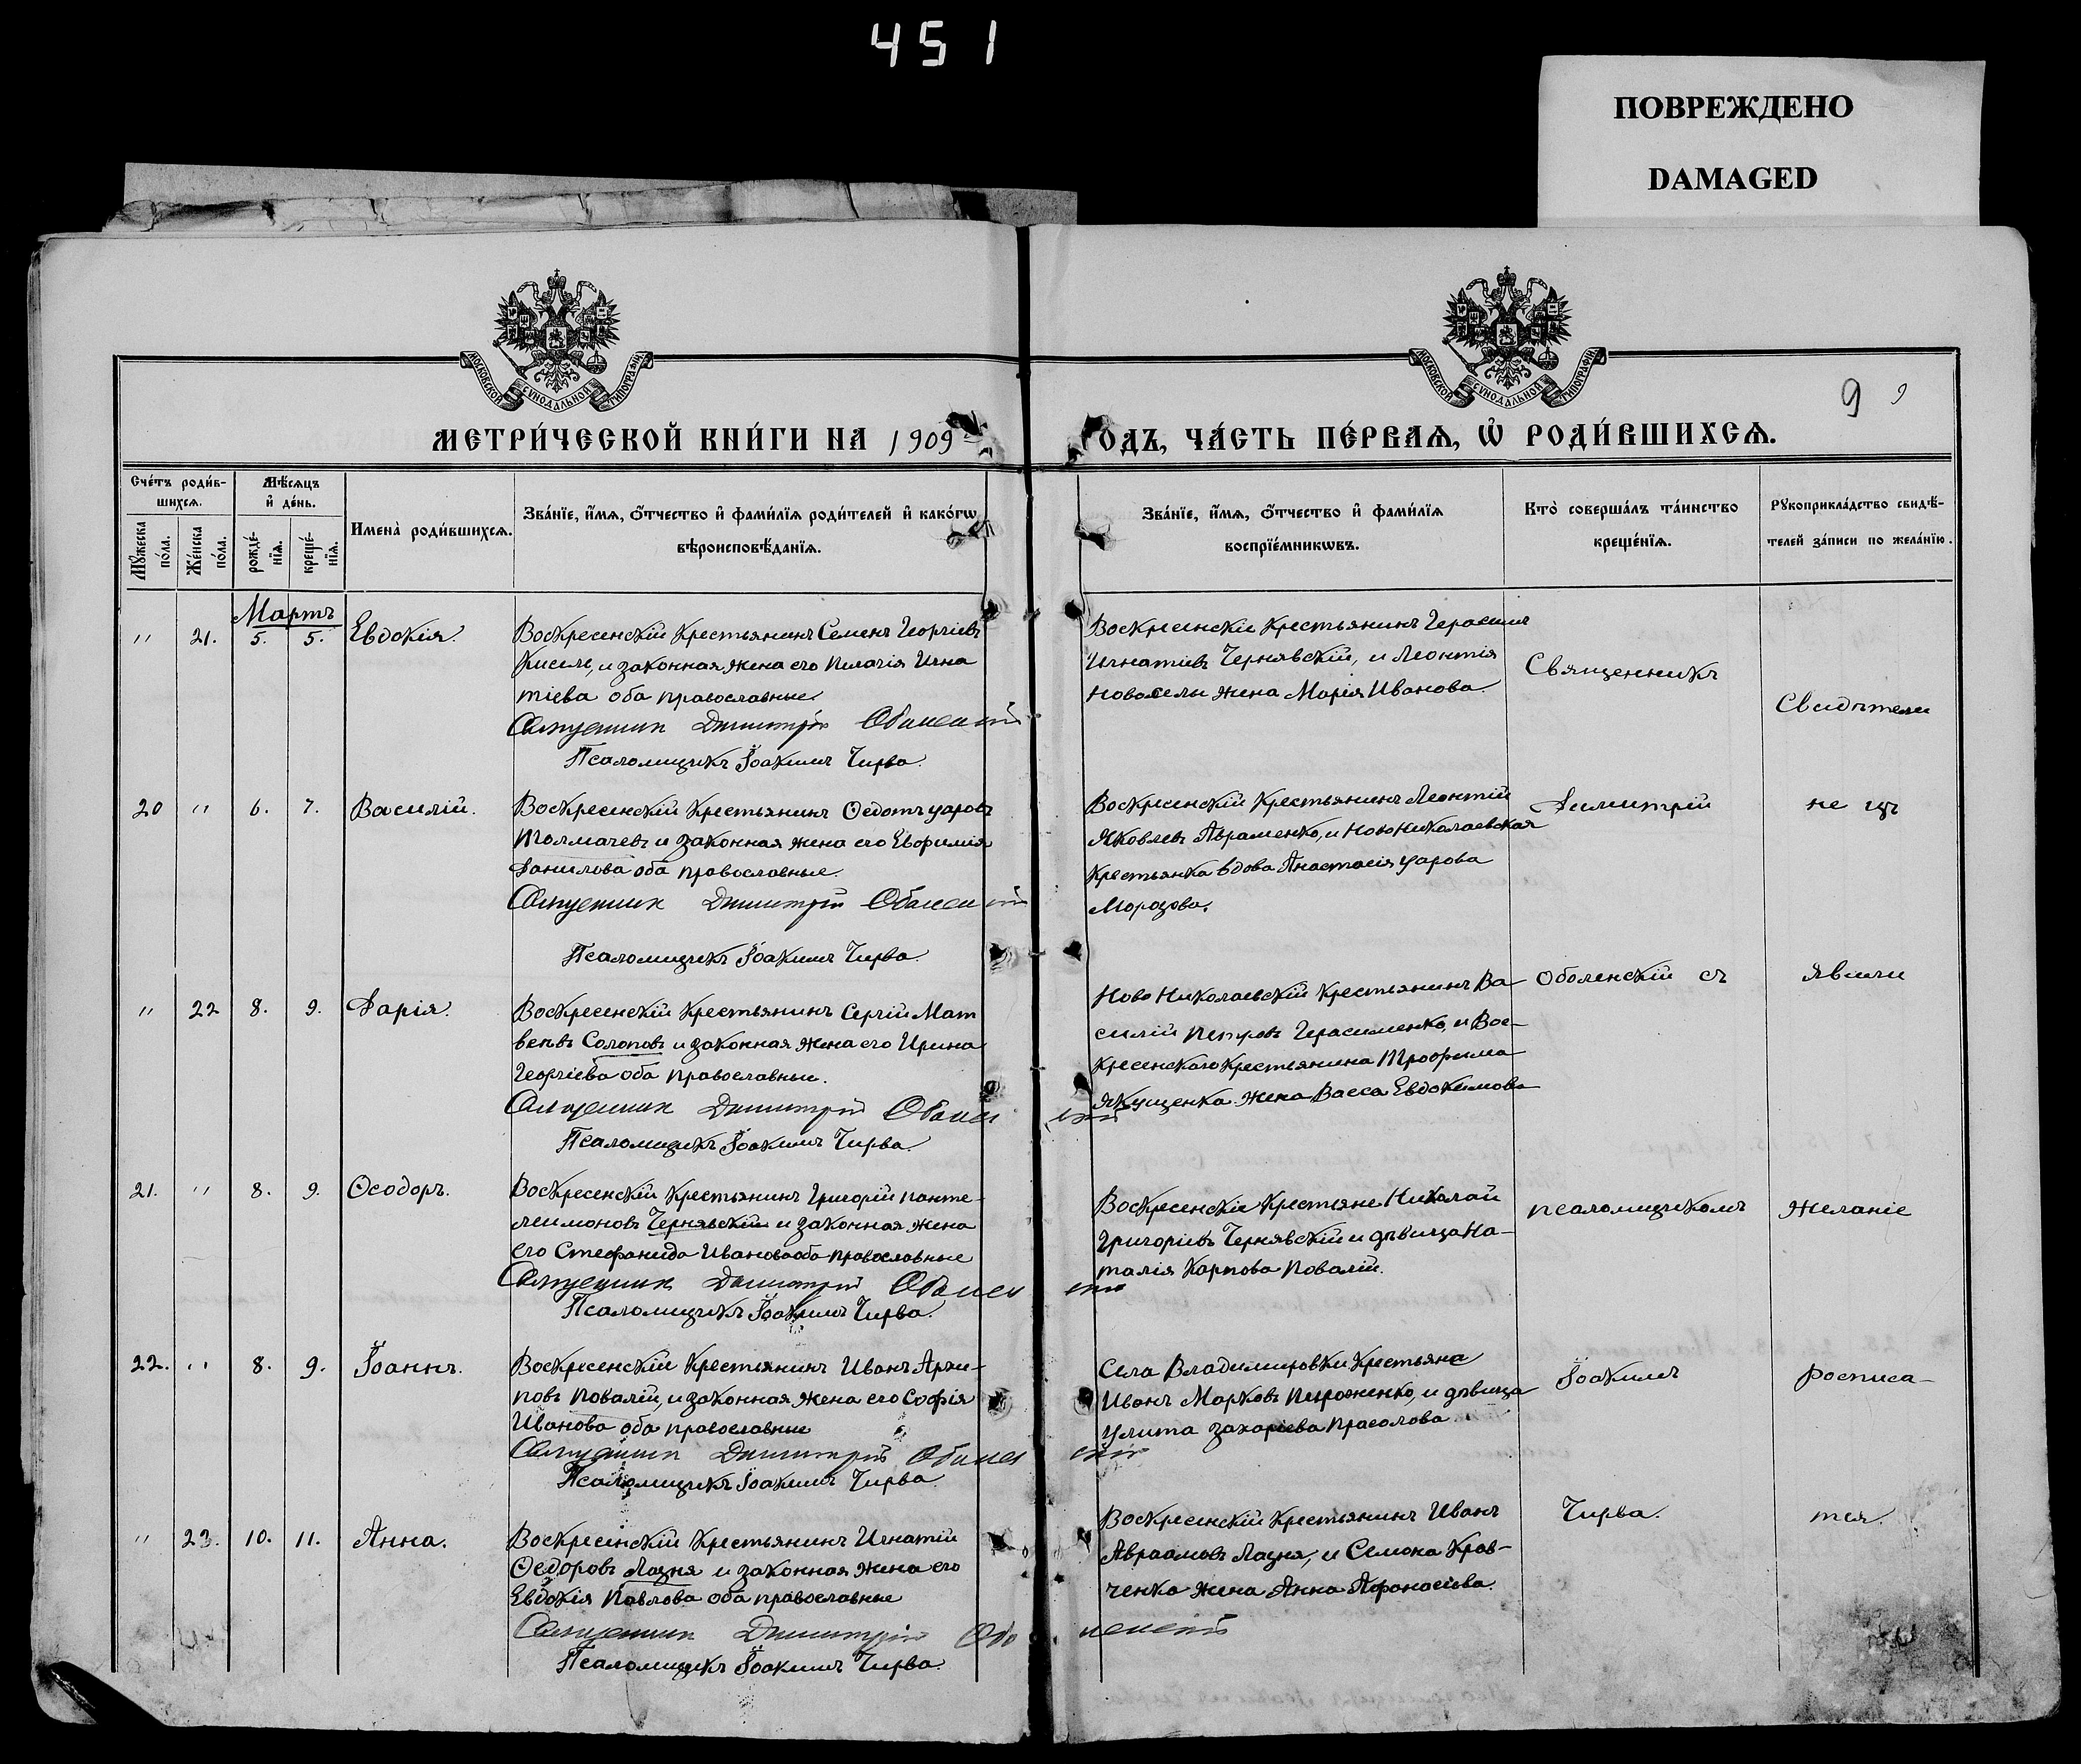 451
ПОВРЕЖДЕНО
DAMAGED
МОСКОВСКОЙ СѴНОДАЛЬНОЙ ТИПОГРАФІИ
МОСКОВСКОЙ СѴНОДАЛЬНОЙ ТИПОГРАФІИ
9 9
МЕТРИ́ЧЕСКОЙ КНИ́ГИ НА 1909
ОДЪ, ЧА́СТЬ ПЕ́РВАѦ, Ѡ҆ РОДИ́ВШИХСѦ.
Сче́тъ роди́в-
шихсѧ.
Мѣ́сѧцъ
и҆ де́нь.
Мꙋ́жеска
по́ла.
Же́нска
по́ла.
рожде́-
нїѧ.
креще́-
нїѧ.
Имена̀ роди́вшихсѧ.
Зва́нїе, и҆́мѧ, ѻ҆́тчество и҆ фами́лїѧ роди́телей и҆ како́гѡ
вѣроисповѣ́данїѧ.
Зва́нїе, и҆́мѧ, ѻ҆́тчество и҆ фами́лїѧ
воспрїе́мникѡвъ.
Кто̀ соверша́лъ та́инство
креще́нїѧ.
Рꙋкоприкла́дство свидѣ́-
телей за́писи по жела́нїю.
Мартъ
" 21. 5. 5. Евдокія.
Воскресенскій крестьянинъ Семенъ Георгіевъ
Кисель, и законная жена его Пелагія Игна
тіева оба православные.
Священникъ Димитрій Оболенскій
Псаломщикъ Іоакимъ Чирва.
Воскресенскіе крестьянинъ Герасимъ
Игнатіевъ Чернявскій, и Леонтія
Новоселы жена Марія Иванова.
Священникъ
Свидѣтели
20 " 6. 7. Василій.
Воскресенскій крестьянинъ Ѳедотъ Уаровъ
Толмачевъ и законная жена его Евфимія
Данилова оба православные.
Священникъ Димитрій Оболенскій
Псаломщикъ Іоакимъ Чирва.
Воскресенскій крестьянинъ Леонтій
Яковлевъ Авраменко, и Ново Николаевская
крестьянка вдова Анастасія Уарова
Морозова.
Димитрій
не изъ
" 22 8. 9. Дарія.
Воскресенскій крестьянинъ Сергій Мат
вѣевъ Солоповъ и законная жена его Ирина
Георгіева оба православные.
Священникъ Димитрій Оболенскій
Псаломщикъ Іоакимъ Чирва.
Ново Николаевскій крестьянинъ Ва-
силій Петровъ Герасименко, и Вос-
кресенскаго крестьянина Трофима
Якущенка жена Васса Евдокимова
Оболенскій съ
явили
21. " 8. 9. Ѳеодоръ.
Воскресенскій крестьянинъ Григорій Панте-
леимоновъ Чернявскій и законная жена
его Стефанида Иванова оба православные
Священникъ Димитрій Оболенскій
Псаломщикъ Іоакимъ Чирва.
Воскресенскіе крестьяне Николай
Григоріевъ Чернявскій и дѣвица На-
талія Карпова Повалій.
псаломщикомъ
желаніе
22. " 8. 9. Іоаннъ.
Воскресенскій крестьянинъ Иванъ Архи-
повъ Повалій, и законная жена его Софія
Иванова оба православные
Священникъ Димитрій Оболенскій
Псаломщикъ Іоакимъ Чирва.
Села Владимировки крестьяне
Иванъ Марковъ Пироженко, и дѣвица
Улита Захаріева Прасолова.
Іоакимъ
росписа-
" 23. 10. 11. Анна.
Воскресенскій крестьянинъ Игнатій
Ѳедоровъ Лазня и законная жена его
Евдокія Павлова оба православные
Священникъ Димитрій Оболенскій
Псаломщикъ Іоакимъ Чирва.
Воскресенскій крестьянинъ Иванъ
Авраамовъ Лазня, и Семена Крав-
ченка жена Анна Афанасіева.
Чирва.
тся.